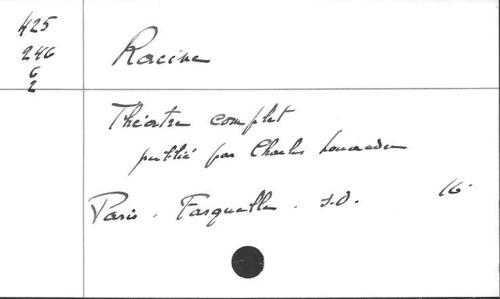 425
246
6
2
Racine
Théatre complet
publié par Charles Louandre
Paris. Fasquelle. s.d. 16.